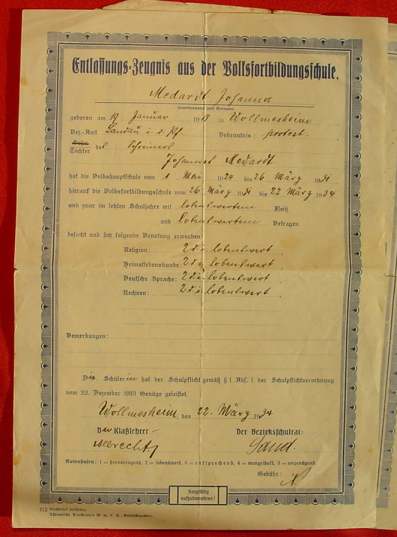 Entlassungs-Zeugnis aus der Volksfortbildungsschule.
Medardt Johanna
geboren am 19 Januar 1918 in Wollmesheim
Bez.-Amt Landau i. d. Pf. Bekenntnis: protest.
Tochter des Schreiners
Johannes Medardt
hat die Volkshauptschule vom 1 Mai 1924 bis 26 März 1931
hierauf die Volksfortbildungsschule vom 26 März 1931 bis 22 März 1934
und zwar im letzten Schuljahre mit lobenswertem Fleiß
und lobenswertem Betragen
besucht und sich folgende Benotung erworben:
Religion: 2 d. i. lobenswert
Heimatlebenskunde: 2 d. i. lobenswert
Deutsche Sprache: 2 d. i. lobenswert
Rechnen: 2 d. i. lobenswert
Bemerkungen:
Die Schülerin hat der Schulpflicht gemäß § 1 Abs. 1 der Schulpflichtverordnung
vom 22. Dezember 1913 Genüge geleistet.
Wollmesheim, den 22. März 1934
Der Klaßlehrer: Der Bezirksschulrat:
Sand
Notenstufen: 1 = hervorragend, 2 = lobenswert, 3 = entsprechend, 4 = mangelhaft, 5 = ungenügend.
Gebühr:
Sorgfältig
aufzubewahren!